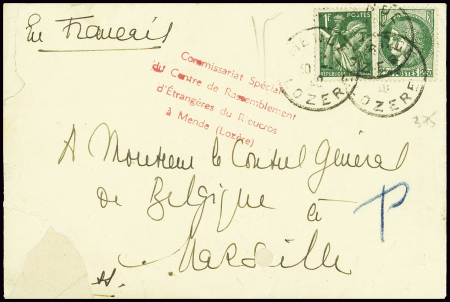 En Français
1F
MENDE
LOZERE
LOZERE
POSTES
Commissariat Spécial
du Centre de Rassemblement
d'Étrangères du Rieucros
à Mende (Lozère)
A Monsieur le Consul Général
de Belgique à
Marseille